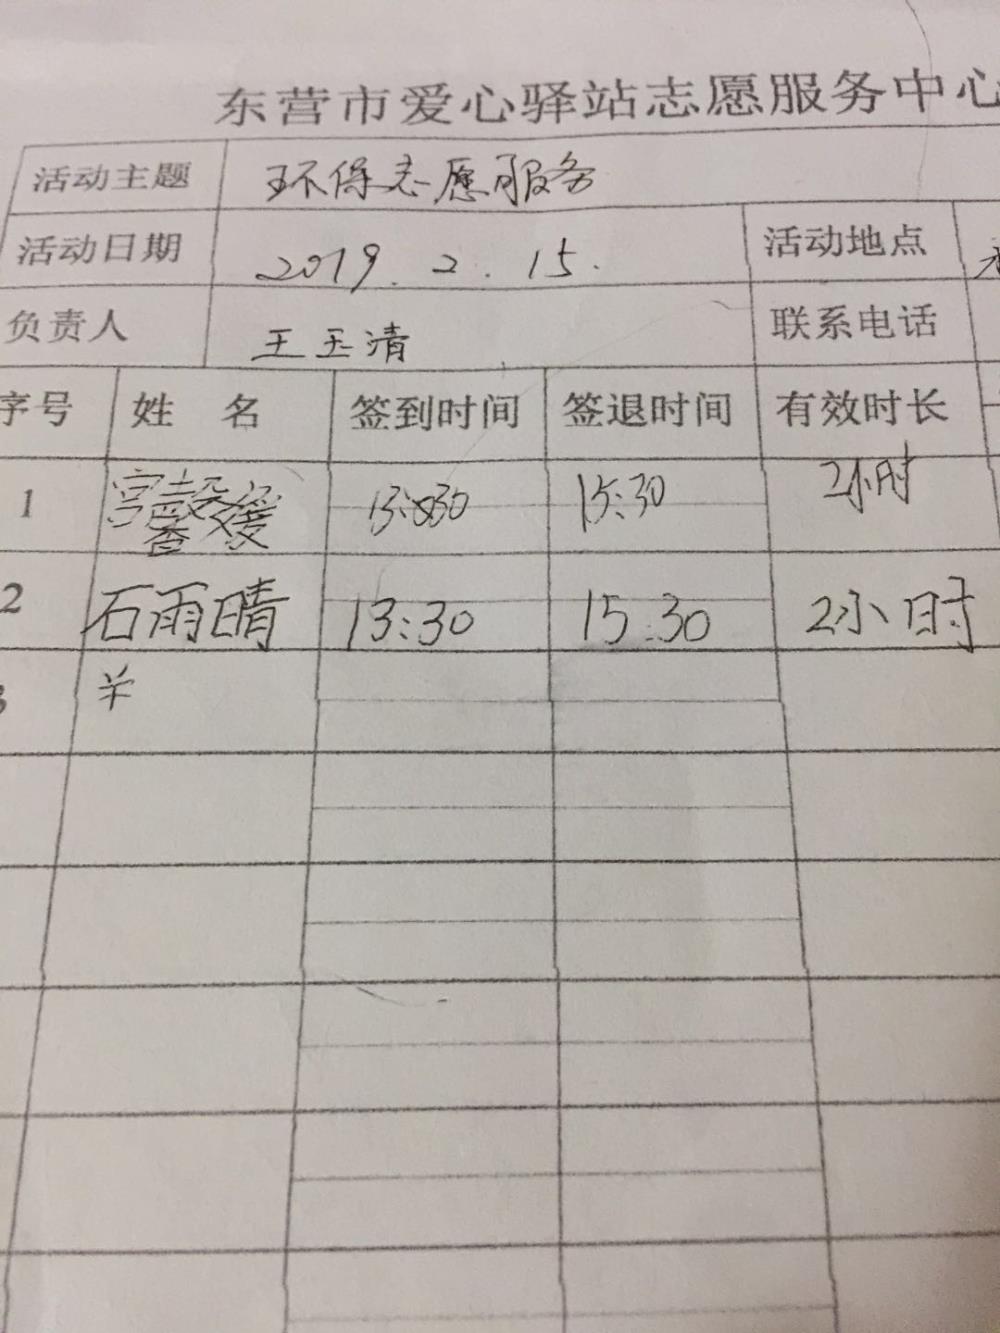 东营市爱心驿站志愿服务中心
活动主题 环保志愿服务
活动日期 2019.2.15. 活动地点
负责人 王玉清 联系电话
序号 姓 名 签到时间 签退时间 有效时长
1 宫馨媛 13:30 15:30 2小时
2 石雨晴 13:30 15:30 2小时
3